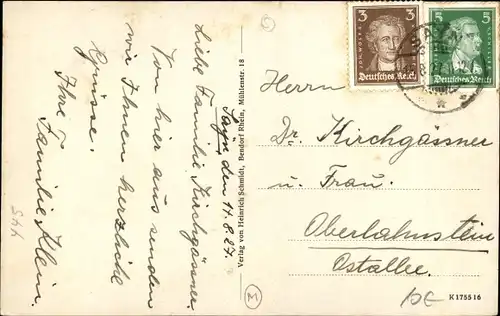 Sayn, den 11.8.27.
Liebe Familie Kirchgässner
Von hier aus senden
wir Ihnen herzliche
Grüsse.
Ihre Familie Klein.
Verlag von Heinrich Schmidt, Bendorf Rhein, Mühlenstr. 18
3 3
Deutsches Reich
5 5
Deutsches Reich
SAYN
Herrn
Dr. Kirchgässner
u. Frau.
Oberlahnstein
Ostallee.
K 175516